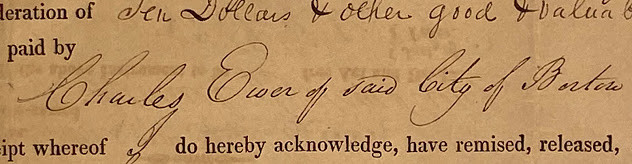 deration of Ten Dollars & other good & valuab
paid by
Charles Ewer of said City of Boston
ipt whereof I do hereby acknowledge, have remised, released,